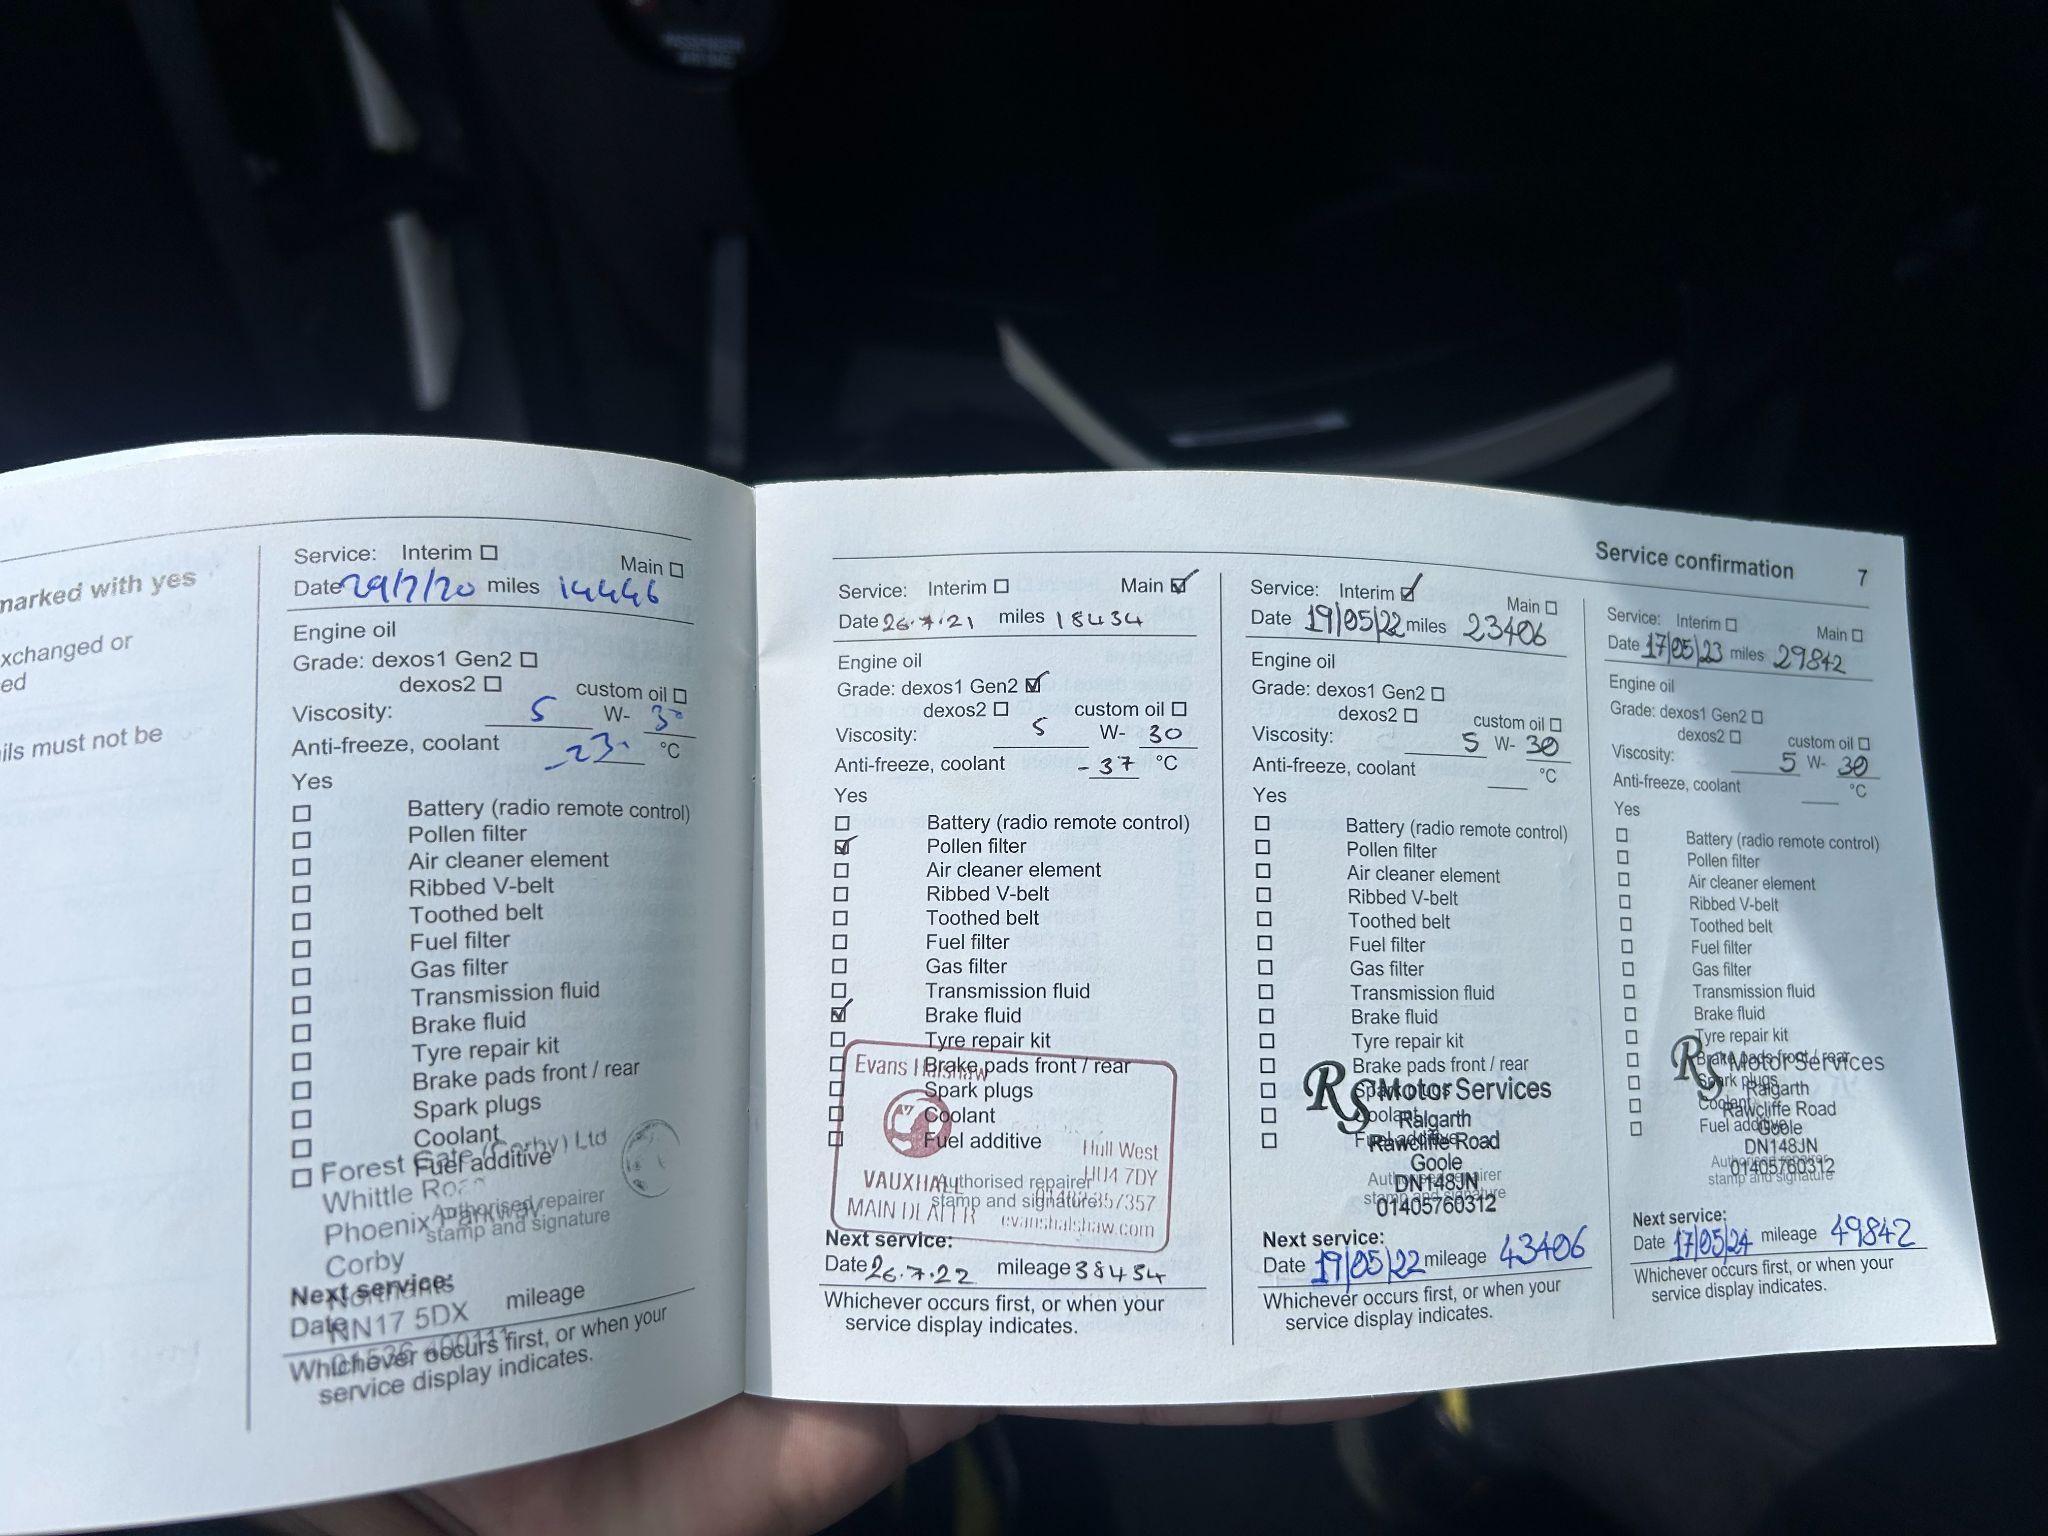 marked with yes
xchanged or
ed
ils must not be
Service: Interim Main
Date 29/7/20 miles 14446
Engine oil
Grade: dexos1 Gen2
dexos2 custom oil
Viscosity: 5 W- 30
Anti-freeze, coolant -23 °C
Yes
Battery (radio remote control)
Pollen filter
Air cleaner element
Ribbed V-belt
Toothed belt
Fuel filter
Gas filter
Transmission fluid
Brake fluid
Tyre repair kit
Brake pads front / rear
Spark plugs
Coolant
Fuel additive
Forest Gate (Corby) Ltd
Whittle Road
Phoenix Parkway
Corby
Northants
NN17 5DX
Authorised repairer
stamp and signature
Next service:
Date mileage
Whichever occurs first, or when your
service display indicates.
Service confirmation 7
Service: Interim Main
Date 26.7.21 miles 18434
Engine oil
Grade: dexos1 Gen2
dexos2 custom oil
Viscosity: 5 W- 30
Anti-freeze, coolant -37 °C
Yes
Battery (radio remote control)
Pollen filter
Air cleaner element
Ribbed V-belt
Toothed belt
Fuel filter
Gas filter
Transmission fluid
Brake fluid
Tyre repair kit
Brake pads front / rear
Spark plugs
Coolant
Fuel additive
Evans Halshaw
Hull West
HU4 7DY
VAUXHALL
MAIN DEALER
evanshalshaw.com
Authorised repairer
stamp and signature
Next service:
Date 26.7.22 mileage 38434
Whichever occurs first, or when your
service display indicates.
Service: Interim Main
Date 19/05/22 miles 23406
Engine oil
Grade: dexos1 Gen2
dexos2 custom oil
Viscosity: 5 W- 30
Anti-freeze, coolant °C
Yes
Battery (radio remote control)
Pollen filter
Air cleaner element
Ribbed V-belt
Toothed belt
Fuel filter
Gas filter
Transmission fluid
Brake fluid
Tyre repair kit
Brake pads front / rear
Spark plugs
Coolant
Fuel additive
RS Motor Services
Ralgarth
Rawcliffe Road
Goole
DN148JN
01405760312
Authorised repairer
stamp and signature
Next service:
Date 19/05/22 mileage 43406
Whichever occurs first, or when your
service display indicates.
Service: Interim Main
Date 17/05/23 miles 29842
Engine oil
Grade: dexos1 Gen2
dexos2 custom oil
Viscosity: 5 W- 30
Anti-freeze, coolant °C
Yes
Battery (radio remote control)
Pollen filter
Air cleaner element
Ribbed V-belt
Toothed belt
Fuel filter
Gas filter
Transmission fluid
Brake fluid
Tyre repair kit
Brake pads front / rear
Spark plugs
Coolant
Fuel additive
RS Motor Services
Ralgarth
Rawcliffe Road
Goole
DN148JN
01405760312
Authorised repairer
stamp and signature
Next service:
Date 17/05/24 mileage 49842
Whichever occurs first, or when your
service display indicates.